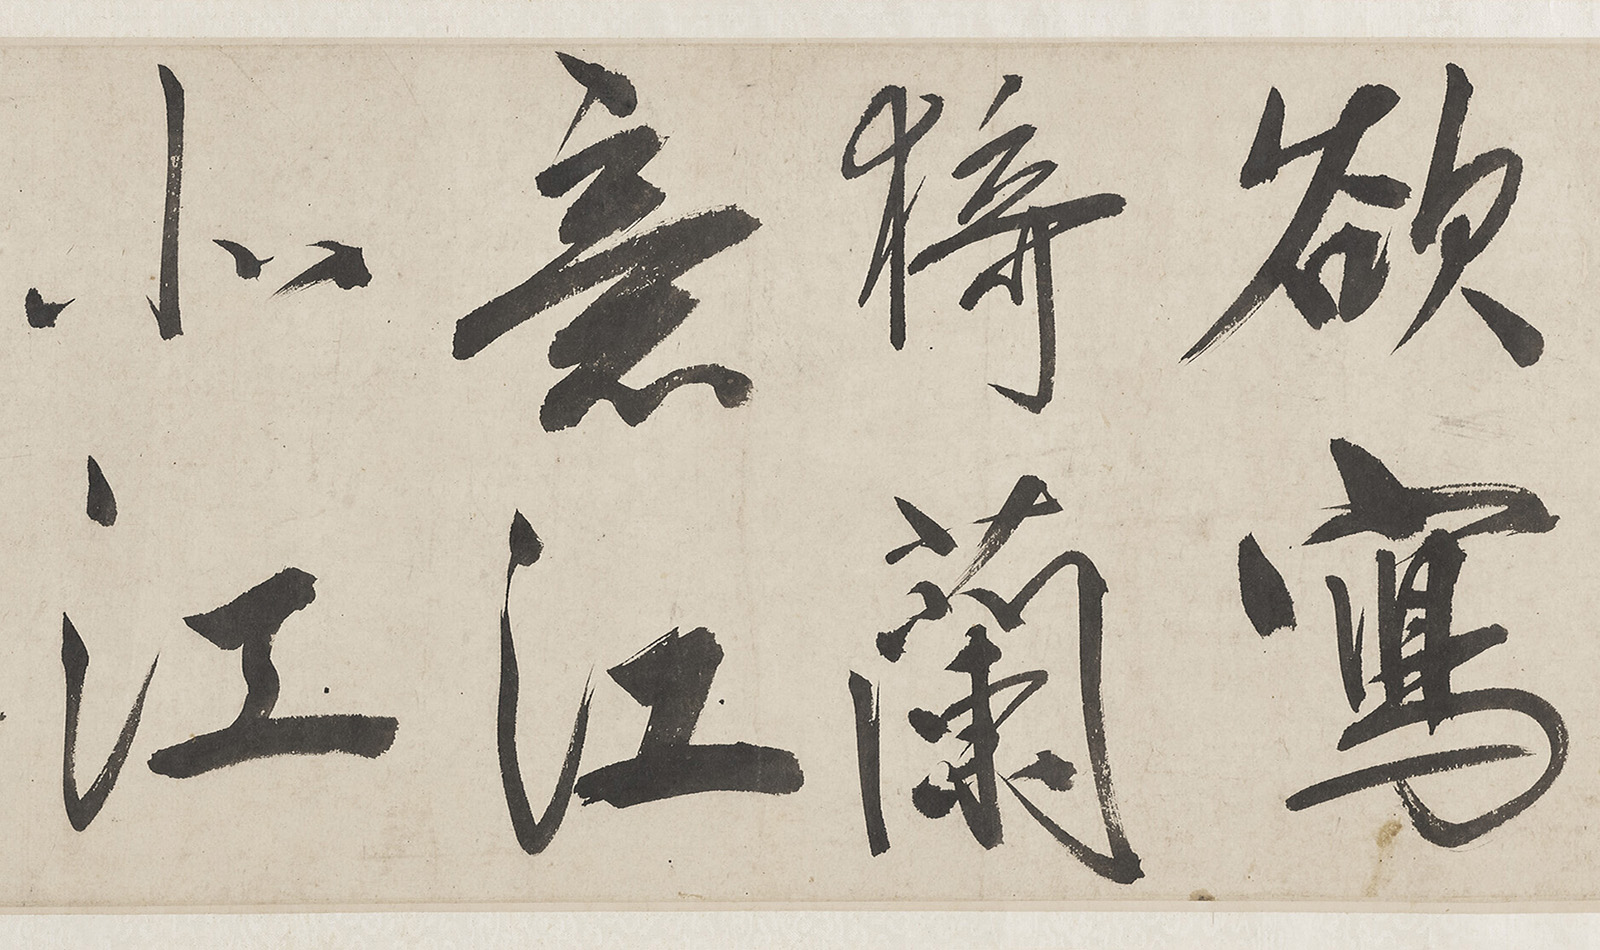 欲寫
猗蘭
意江
北江